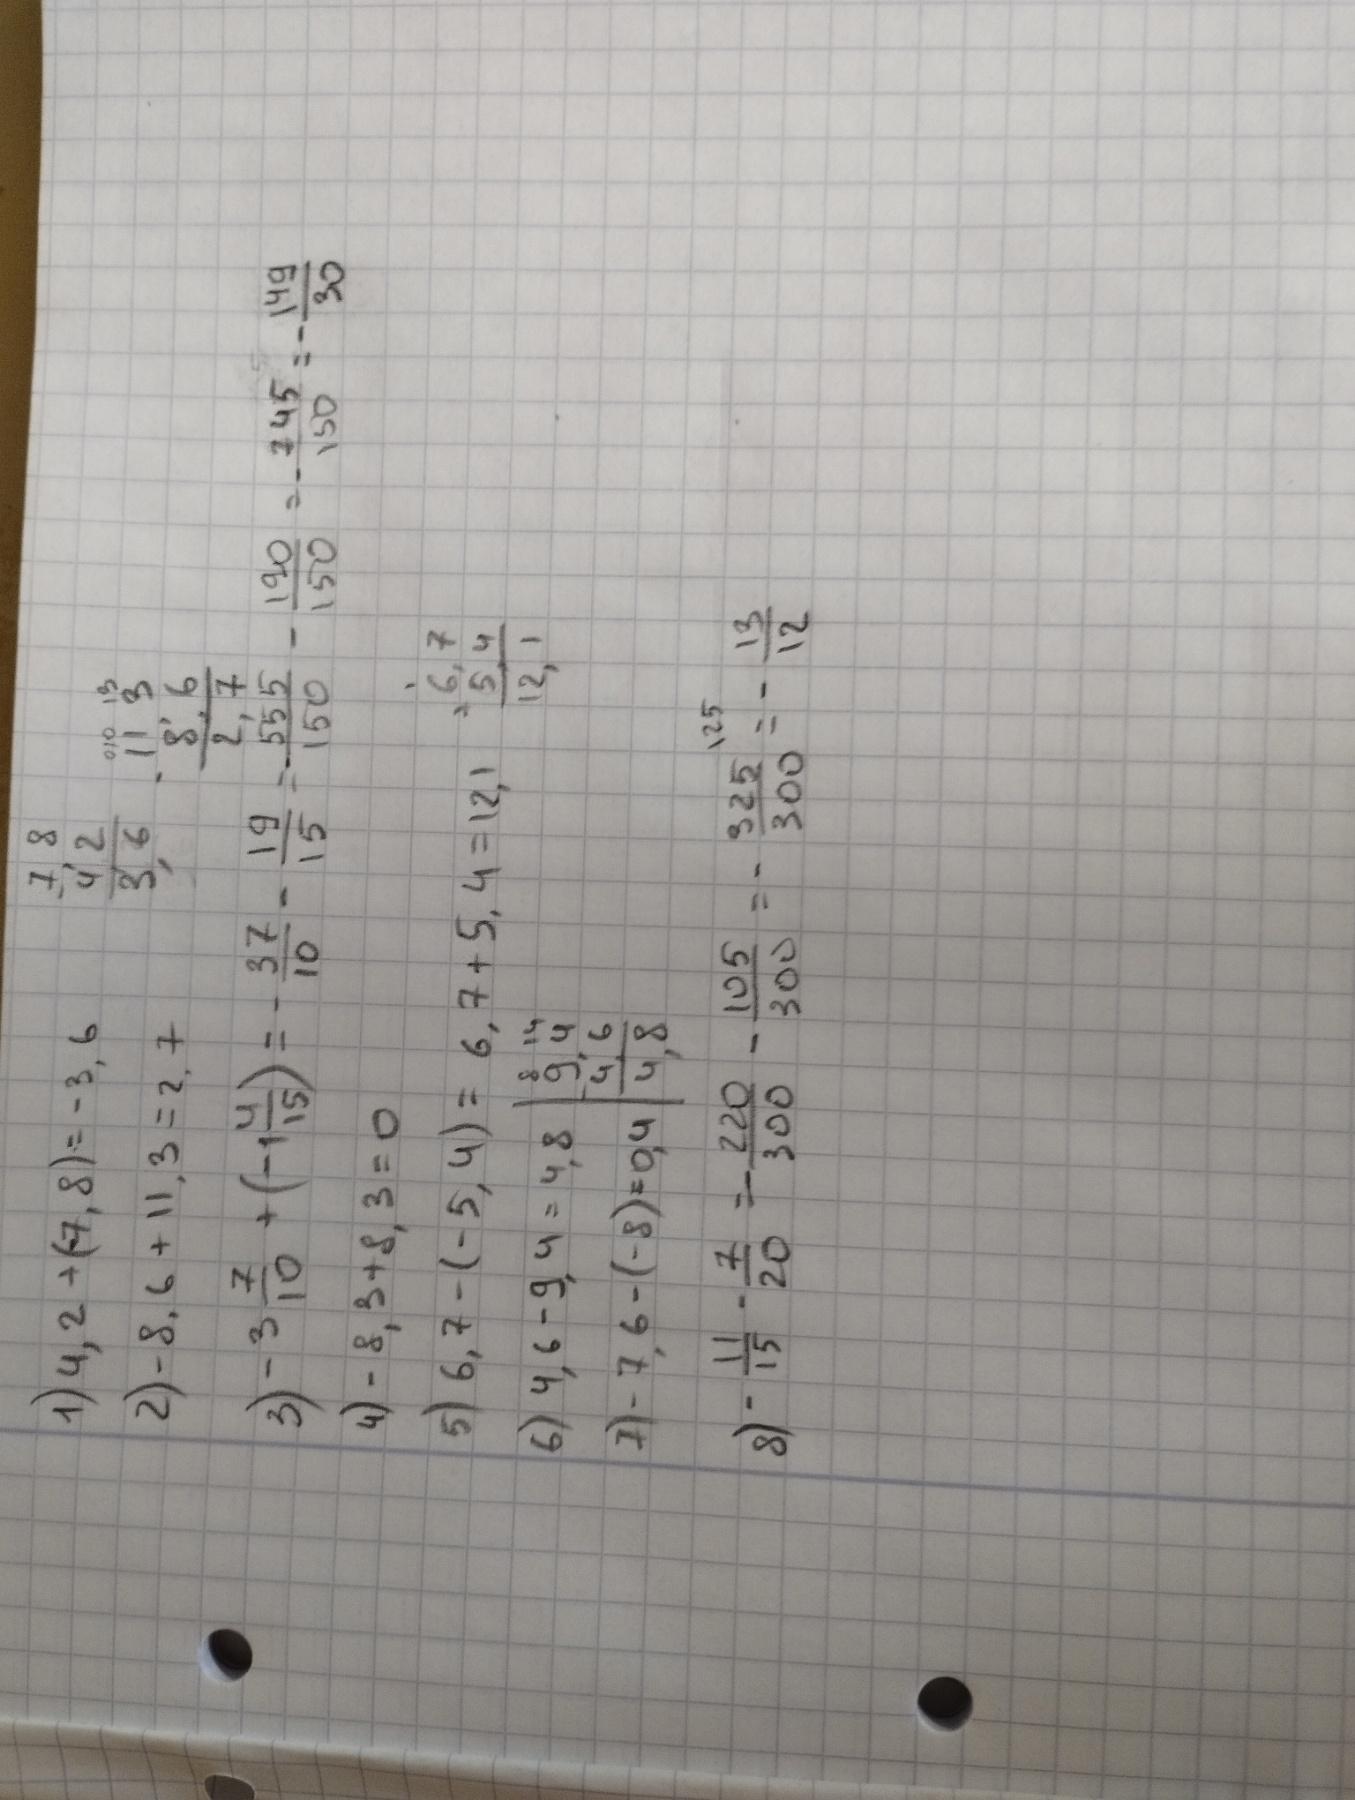 1) 4,2 + (-7,8) = -3,6
7,8
4,2
3,6
2) -8,6 + 11,3 = 2,7
010 13
- 11 3
8,6
2,7
3) -3 7/10 + (-1 4/15) = - 37/10 - 19/15 = - 555/150 - 190/150 = - 745/150 = - 149/30
4) -8,3 + 8,3 = 0
5) 6,7 - (-5,4) = 6,7 + 5,4 = 12,1
1
+ 6,7
5,4
12,1
6) 4,6 - 9,4 = 4,8
8 14
- 9,4
4,6
4,8
7) -7,6 - (-8) = 0,4
8) - 11/15 - 7/20 = - 220/300 - 105/300 = - 325/300 = - 13/12
125